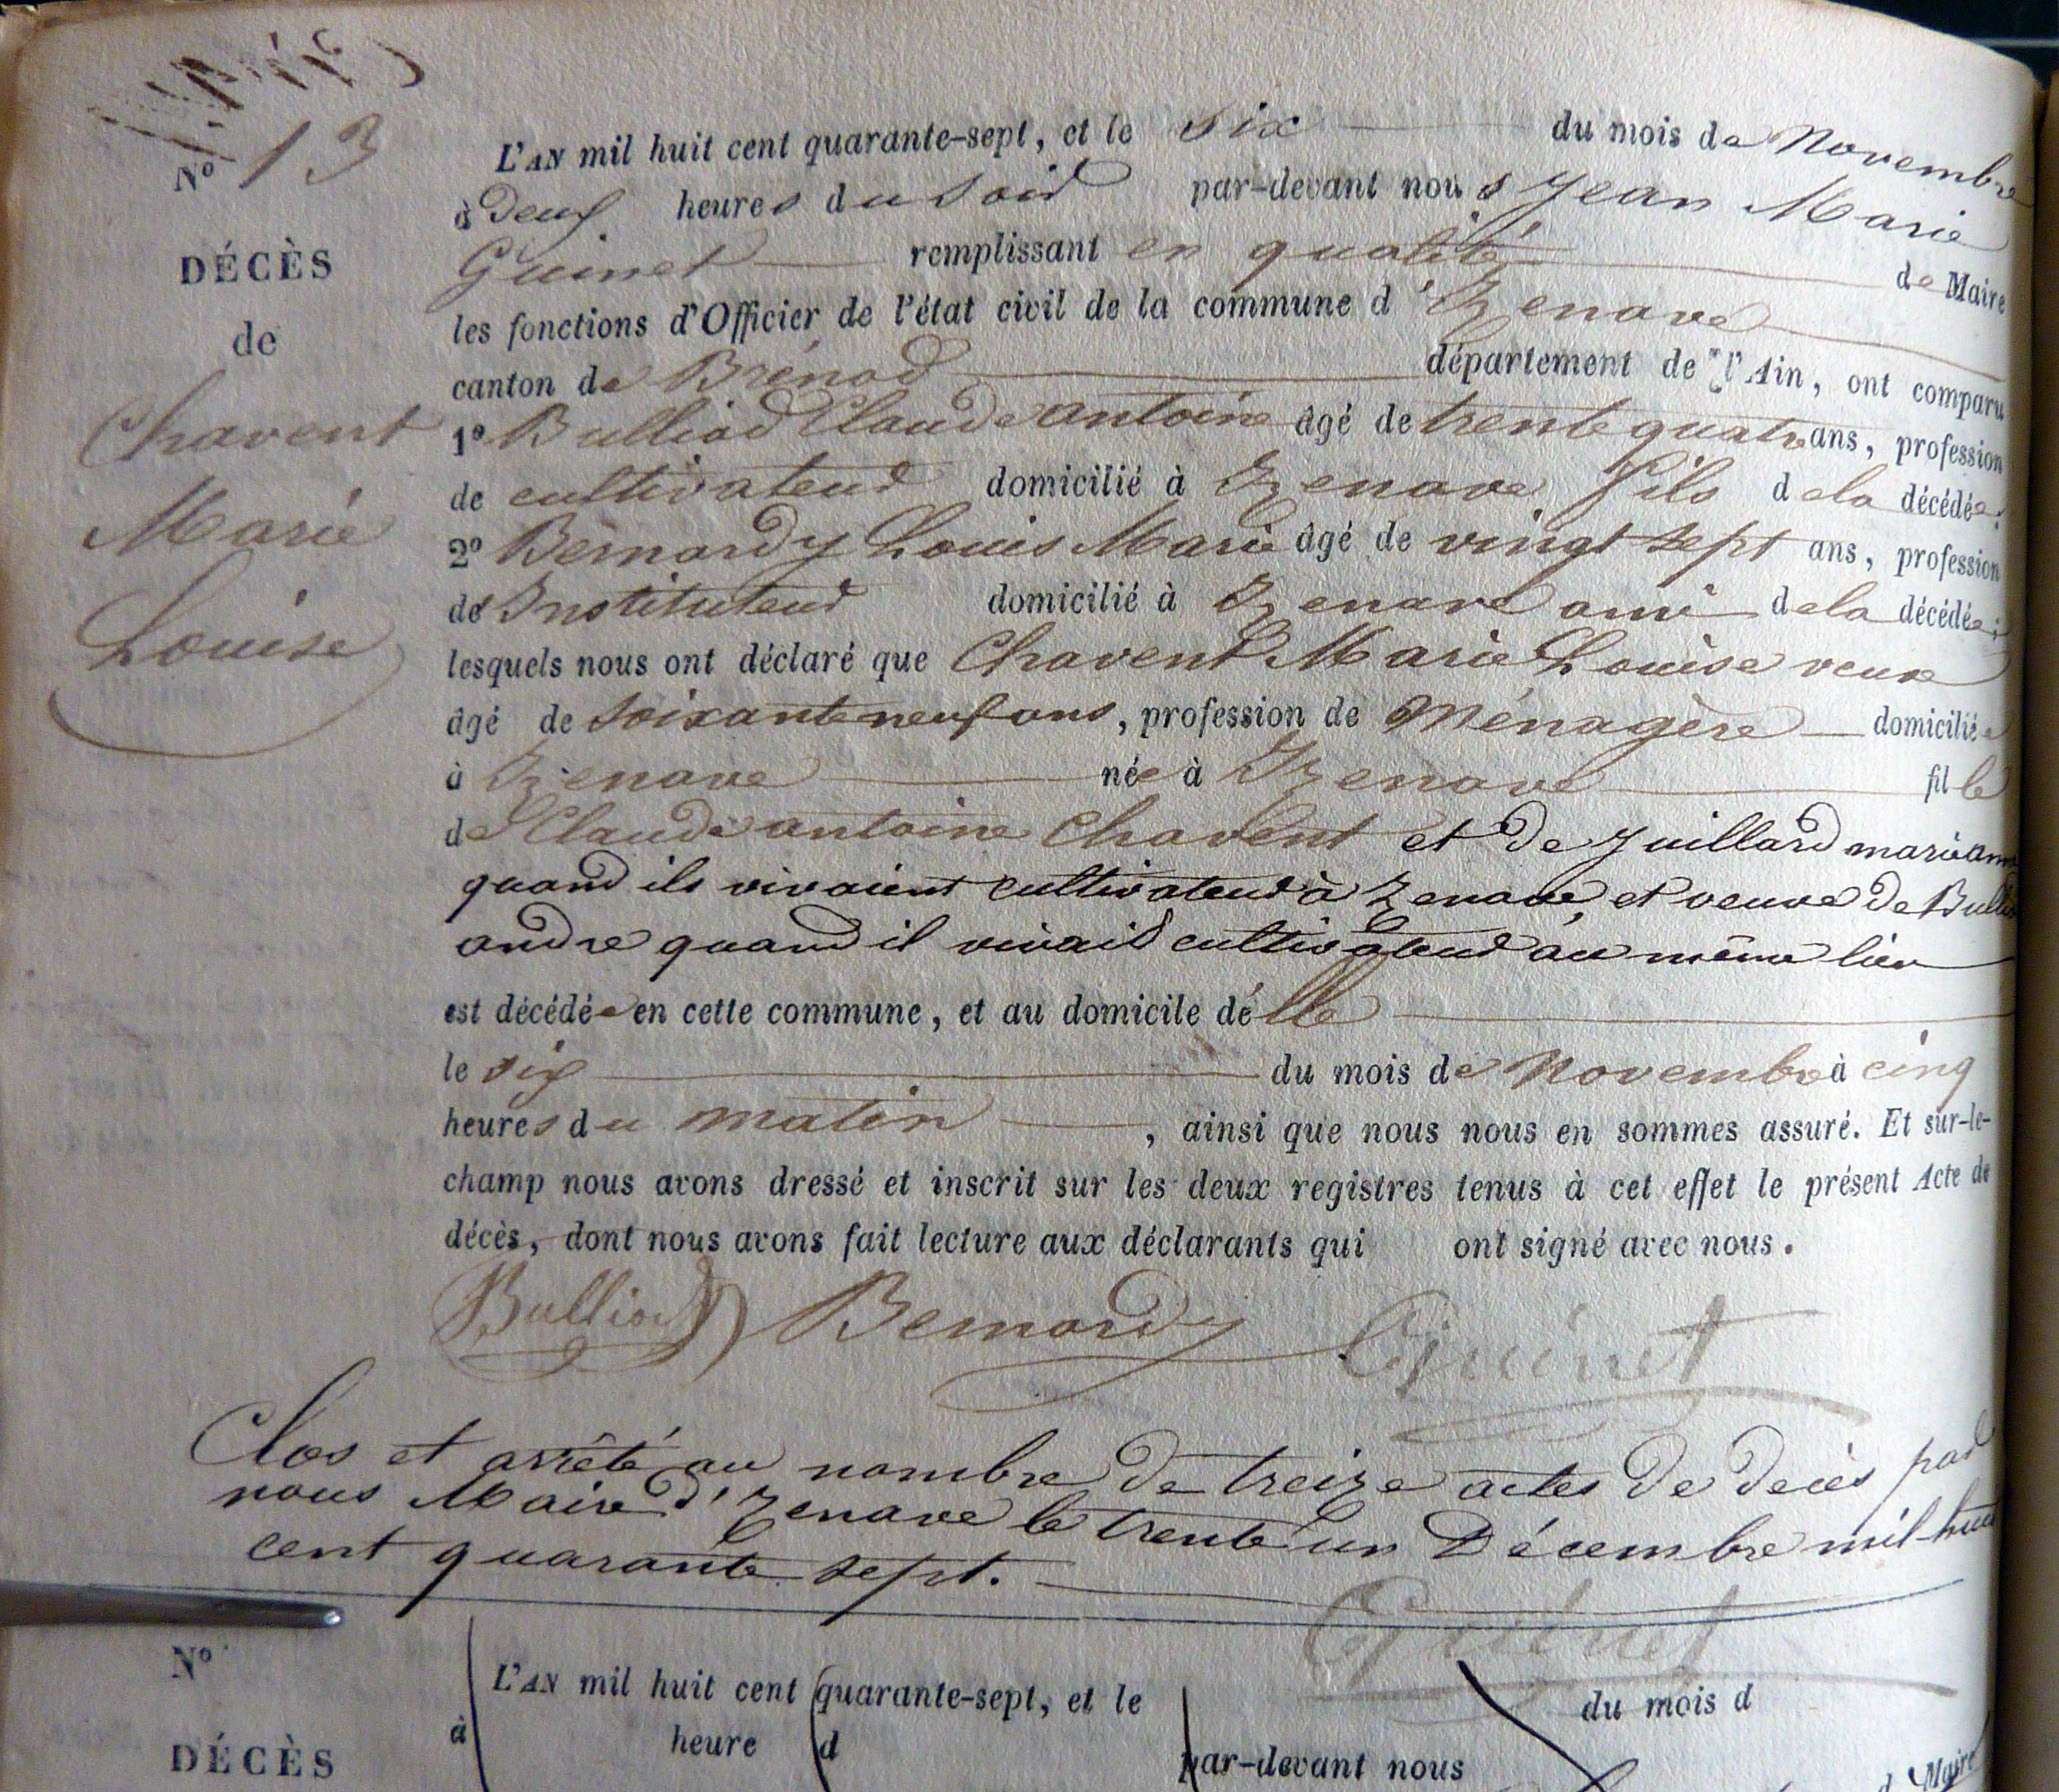 Nº 13
DÉCÈS
de
Chavent
Marie
Louise
L'AN mil huit cent quarante-sept, et le six du mois de Novembre
à deux heures du soir par-devant nous Jean Marie
Guinet remplissant en qualité de Maire
les fonctions d'Officier de l'état civil de la commune d'Izenave
canton de Brénod département de l'Ain, ont comparu
1º Bulliod Claude antoine âgé de trente quatre ans, profession
de cultivateur domicilié à Izenave fils de la décédée;
2º Bernardy Louis Marie âgé de vingt sept ans, profession
de Instituteur domicilié à Izenave ami de la décédée;
lesquels nous ont déclaré que Chavent Marie Louise veuve
âgé de soixante neuf ans, profession de Ménagère domiciliée
à Izenave née à Izenave fille
de Claude antoine Chavent et de Juillard marianne
quand ils vivaient cultivateur à Izenave, et veuve de Bulliod
andre quand il vivait cultivateur au même lieu
est décédée en cette commune, et au domicile d'elle
le six du mois de Novembre à cinq
heures du matin, ainsi que nous nous en sommes assuré. Et sur-le-
champ nous avons dressé et inscrit sur les deux registres tenus à cet effet le présent Acte de
décès, dont nous avons fait lecture aux déclarants qui ont signé avec nous.
Bulliod Bernardy Guinet
Clos et arrêté au nombre de treize actes de décès par
nous Maire d'Izenave le trente un Décembre mil huit
cent quarante sept.
Guinet
Nº
DÉCÈS
L'AN mil huit cent quarante-sept, et le du mois d
à heure d par-devant nous
d Maire